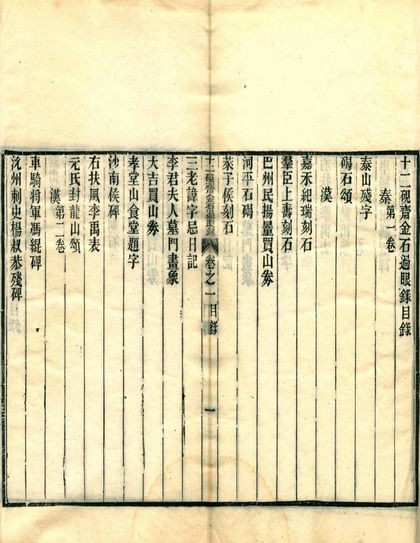 十二硯齋金石過眼錄目錄
秦 第一卷
泰山殘字
碣石頌
漢
嘉禾紀瑞刻石
羣臣上壽刻石
巴州民揚量買山劵
河平石碣
萊子侯刻石
十二硯齋金石過眼錄 卷之一目錄 一
三老諱字忌日記
李君夫人墓門畫象
大吉買山劵
孝堂山食堂題字
沙南侯碑
右扶風李禹表
元氏封龍山頌
漢 第二卷
車騎將軍馮緄碑
沇州刺史楊叔恭殘碑